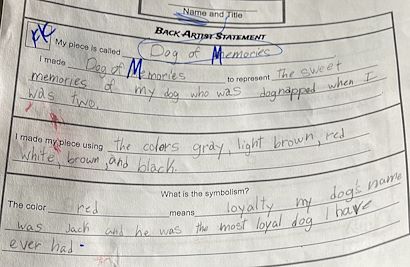 Name and Title
BACK ARTIST STATEMENT
My piece is called Dog of Memories
I made Dog of Memories to represent The sweet
memories of my dog who was dognapped when I
was two.
I made my piece using the colors gray, light brown, red
white, brown, and black.
What is the symbolism?
The color red means loyalty my dog's name
was Jach and he was the most loyal dog I have
ever had.